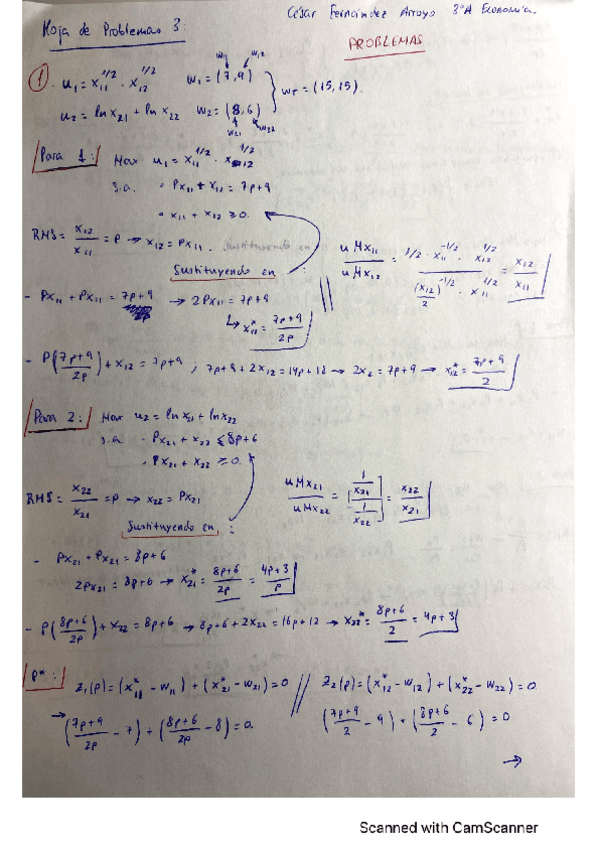 César Fernández Arroyo 3ºA Economía.
Hoja de Problemas 3:
PROBLEMAS
① u₁ = x₁₁^1/2 · x₁₂^1/2 w₁ = (7,9) w₁₁ w₁₂ } w_T = (15,15).
u₂ = ln x₂₁ + ln x₂₂ w₂ = (8,6) w₂₁ w₂₂
Para 1: Max u₁ = x₁₁^1/2 · x₁₂^1/2
s.a. · Px₁₁ + x₁₂ = 7p+9
· x₁₁ + x₁₂ ≥ 0.
RMS = x₁₂/x₁₁ = P → x₁₂ = Px₁₁.
Sustituyendo en :
uMx₁₁/uMx₁₂ = (1/2 · x₁₁^-1/2 · x₁₂^1/2)/((x₁₂)^-1/2/2 · x₁₁^1/2) = x₁₂/x₁₁
- Px₁₁ + Px₁₁ = 7p+9 → 2Px₁₁ = 7p+9
↳ x₁₁* = (7p+9)/2p
- P((7p+9)/2p) + x₁₂ = 7p+9 ; 7p+9+2x₁₂ = 14p+18 → 2x₂ = 7p+9 → x₁₂* = (7p+9)/2
Para 2: Max u₂ = ln x₂₁ + ln x₂₂
s.a. · Px₂₁ + x₂₂ ≤ 8p+6
· Px₂₁ + x₂₂ ≥ 0.
RMS = x₂₂/x₂₁ = P → x₂₂ = Px₂₁
Sustituyendo en :
uMx₂₁/uMx₂₂ = [(1/x₂₁)/(1/x₂₂)] = x₂₂/x₂₁
- Px₂₁ + Px₂₁ = 8p+6
2px₂₁ = 8p+6 → x₂₁* = (8p+6)/2p = (4p+3)/p
- P((8p+6)/2p) + x₂₂ = 8p+6 → 8p+6+2x₂₂ = 16p+12 → x₂₂* = (8p+6)/2 = 4p+3
P*: Z₁(p) = (x₁₁* - w₁₁) + (x₂₁* - w₂₁) = 0 // Z₂(p) = (x₁₂* - w₁₂) + (x₂₂* - w₂₂) = 0
→ ((7p+9)/2p - 7) + ((8p+6)/2p - 8) = 0. ((7p+9)/2 - 9) + ((8p+6)/2 - 6) = 0
→
Scanned with CamScanner